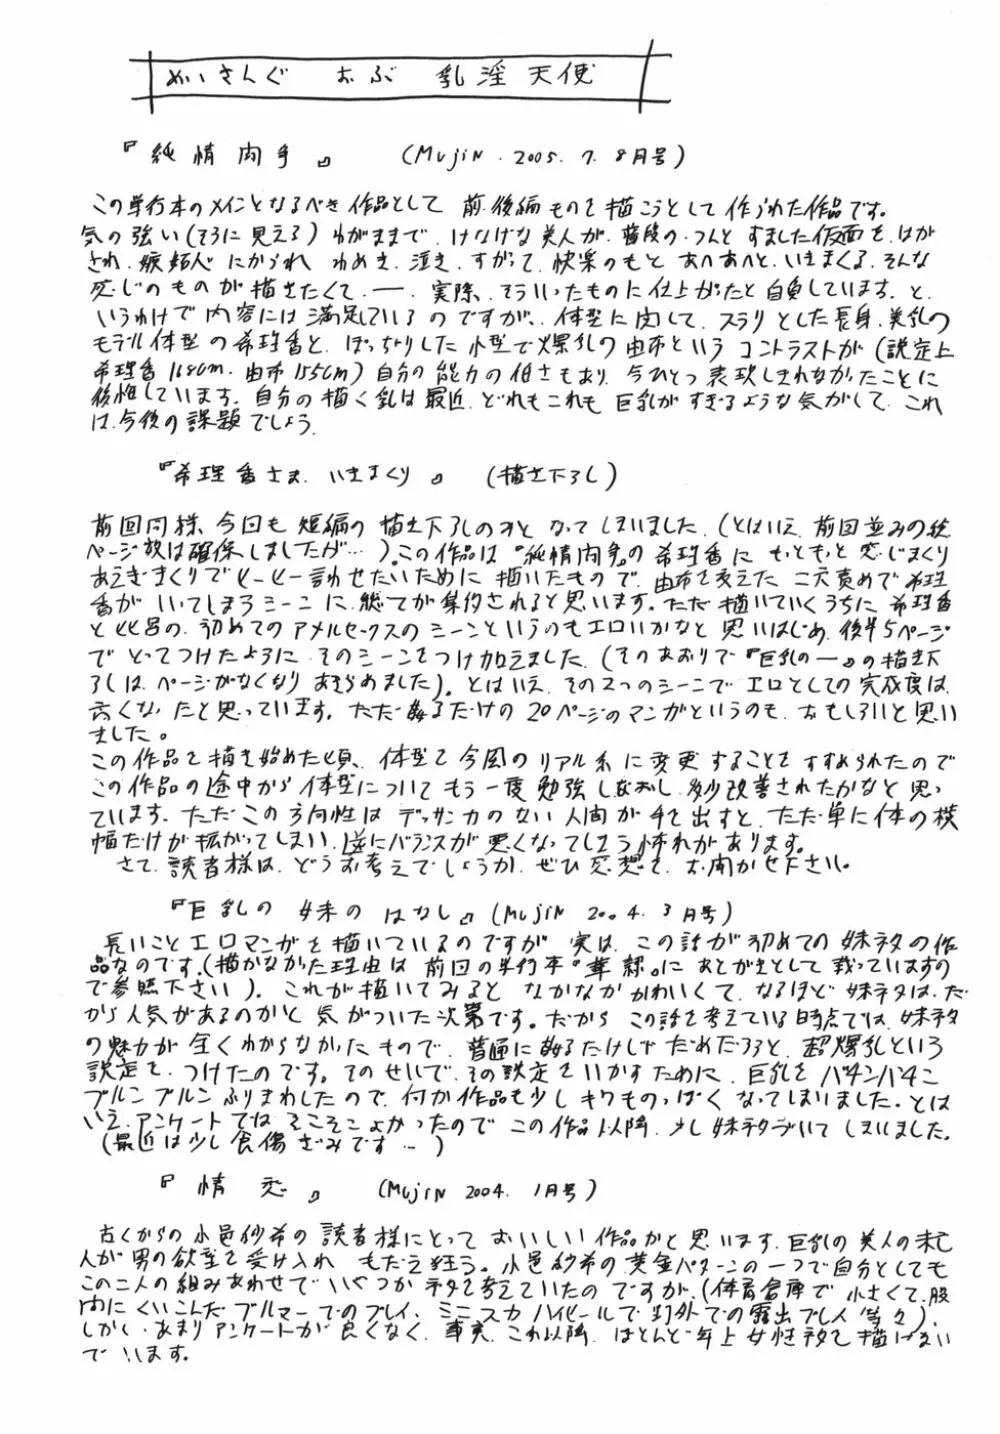 めいきんぐ おぶ 乳淫天使
『純情両手』 (MUJIN.2005.7.8月号)
この単行本のメインとなるべき作品として 前.後編ものを描こうとして作られた作品です。
気の強い(そうに見える)わがままで、けなげな美人が、普段の、つんとすました仮面を、はが
され、嫉妬心にかられ わめき、泣き、すがって、快楽のもと あへあへと、いきまくる、そんな
感じのものが描きたくて、ー、実際、そういったものに仕上がったと自負しています。と、
いうわけで内容には満足しているのですが、体型に関して、スラリとした長身、美乳の
モデル体型の希理香と、ぽっちゃりした小型で爆乳の由布というコントラストが(設定上
希理香168cm、由布155cm)自分の能力の低さもあり、今ひとつ表現しきれなかったことに
後悔しています。自分の描く乳は最近、どれもこれも 巨乳がすぎるような気がして、これ
は、今後の課題でしょう。
『希理香さま、いきまくり』 (描き下ろし)
前回同様、今回も 短編の描き下ろしのみと なってしまいました。(とはいえ、前回並みの総
ページ数は確保しましたが…)。この作品は『純情両手』の希理香に もっともっと感じまくり
あえぎまくりでヒーヒー言わせたいために 描いたもので、由布を交えた 二穴責めで希理
香が いってしまうシーンに、総てが集約されると思います。ただ描いていくうちに 希理香
と 初めてのアナルセックスのシーンというのもエロいかなと 思いはじめ、後半5ページ
で とってつけたように そのシーンをつけ加えました。(そのあおりで『巨乳の―』の描き下
ろしは、ページがなくなり あきらめました)。とはいえ、その2つのシーンで エロとしての完成度は、
高くなったと思っています。ただ姦るだけの20ページのマンガというのも、おもしろいと思い
ました。
この作品を描き始めた頃、体型を今風のリアル系に変更することをすすめられたので
この作品の途中から 体型についてもう一度勉強しなおし、多少改善されたかなと思っ
ています。ただ この方向性は デッサン力のない人間が手を出すと、ただ単に体の横
幅だけが拡がってしまい、逆にバランスが悪くなってしまう怖れがあります。
さて、読者様は、どうお考えでしょうか、ぜひ感想を、お聞かせ下さい。
『巨乳の妹のはなし』(MUJIN 2004.3月号)
長いこと エロマンガを描いているのですが 実は、この話が初めての妹ネタの作
品なのです。(描かなかった理由は 前回の単行本『』に あとがきとして載っていますの
で参照下さい)。これが描いてみると なかなかかわいくて、なるほど妹ネタは、だ
から人気があるのかと 気がついた次第です。だから この話を考えている時点では、妹ネタ
の魅力が全くわからなかったもので、普通に姦るだけじゃ だめだろうと、超爆乳という
設定を、つけたのです。そのせいで、その設定をいかすために、巨乳を バチンバチン
ブルンブルンふりまわしたので、何か作品も少しキワものっぽく なってしまいました。とは
いえ、アンケートでは そこそこよかったので この作品以降、少し妹ネタづいて しまいました。
(最近は少し食傷ぎみです…)
『情恋』 (MUJIN 2004.1月号)
古くからの 小邑紗希の読者様にとって おいしい作品かと思います、巨乳の美人の未亡
人が男の欲望を受け入れ もだえ狂う。小邑紗希の黄金パターンの一つで自分としても
この二人の組みあわせで いくつかネタを考えていたのですが、(体育倉庫で 小さくて、股
間に くいこんだブルマーでのプレイ、ミニスカハイヒールで 町外での露出プレイ等々)、
しかし、あまりアンケートが良くなく、事実、これ以降、ほとんど年上女性ネタを描けない
でいます。